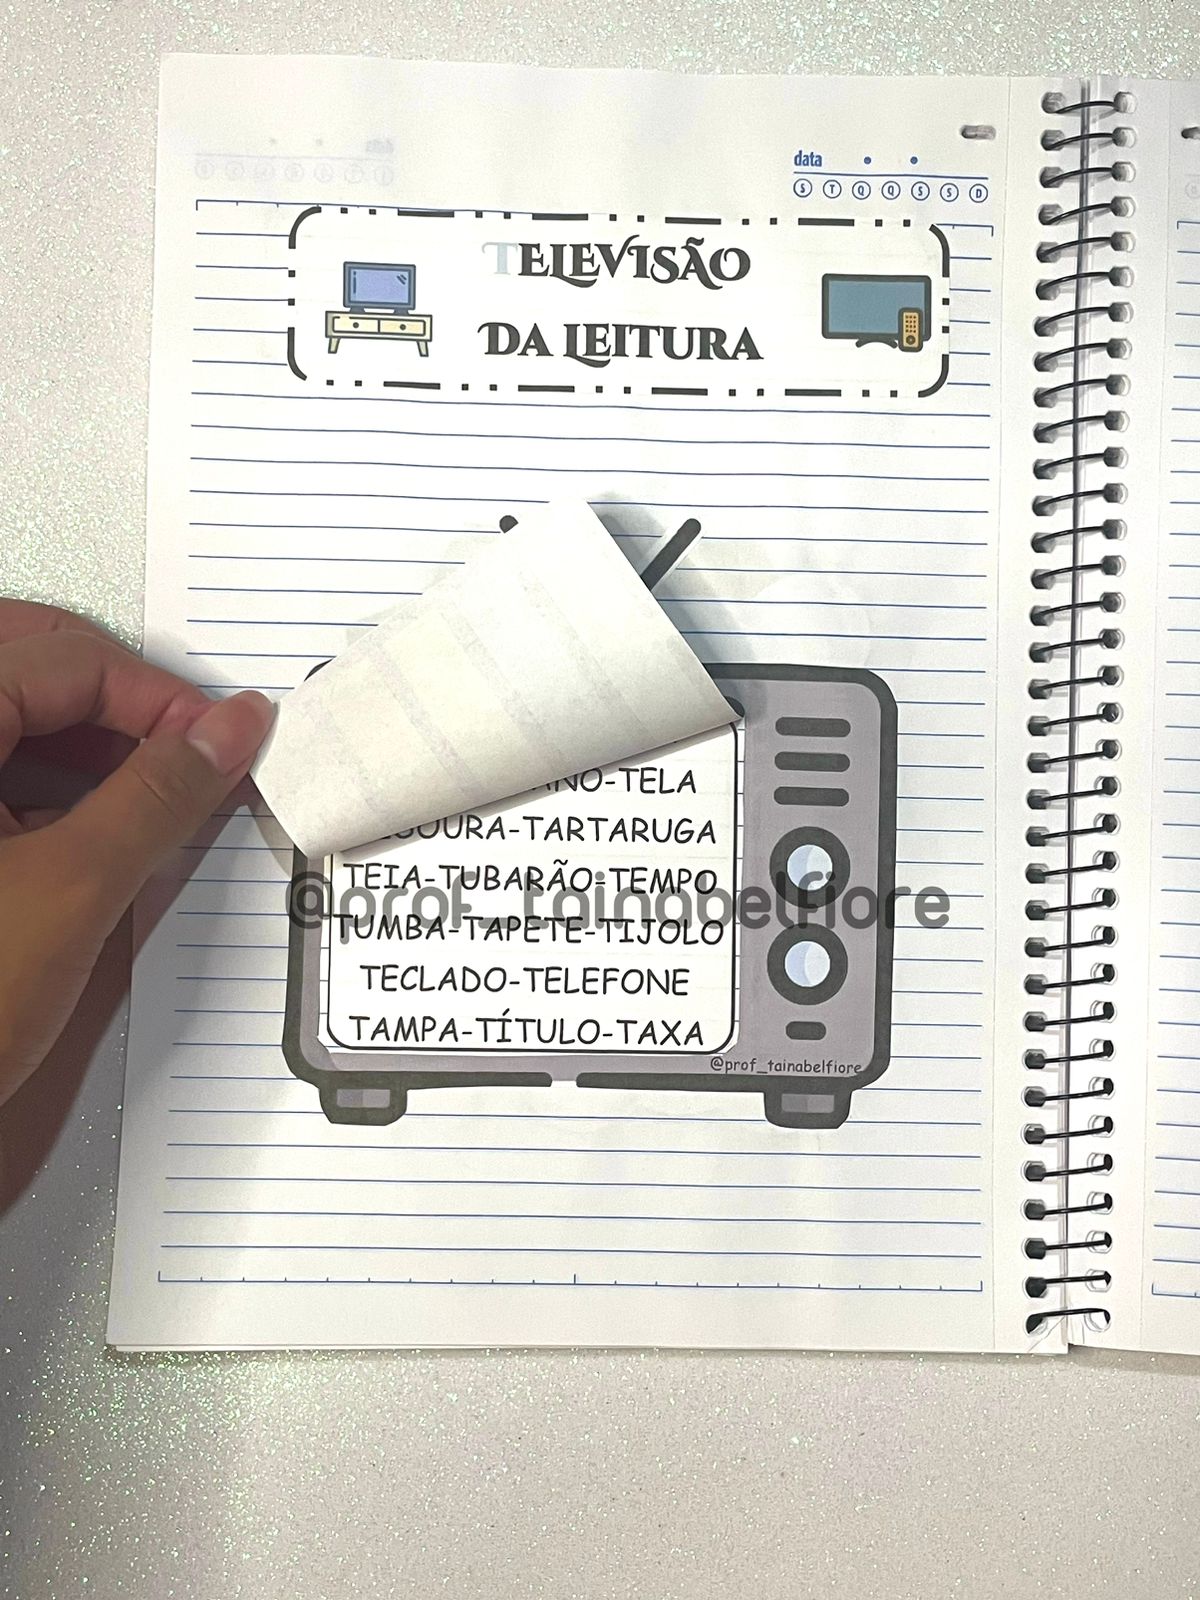 data
S T Q Q S S D
TELEVISÃO
DA LEITURA
TELA
TARTARUGA
TEIA-TUBARÃO-TEMPO
@prof_tainabelfiore
TUMBA-TAPETE-TIJOLO
TECLADO-TELEFONE
TAMPA-TÍTULO-TAXA
@prof_tainabelfiore